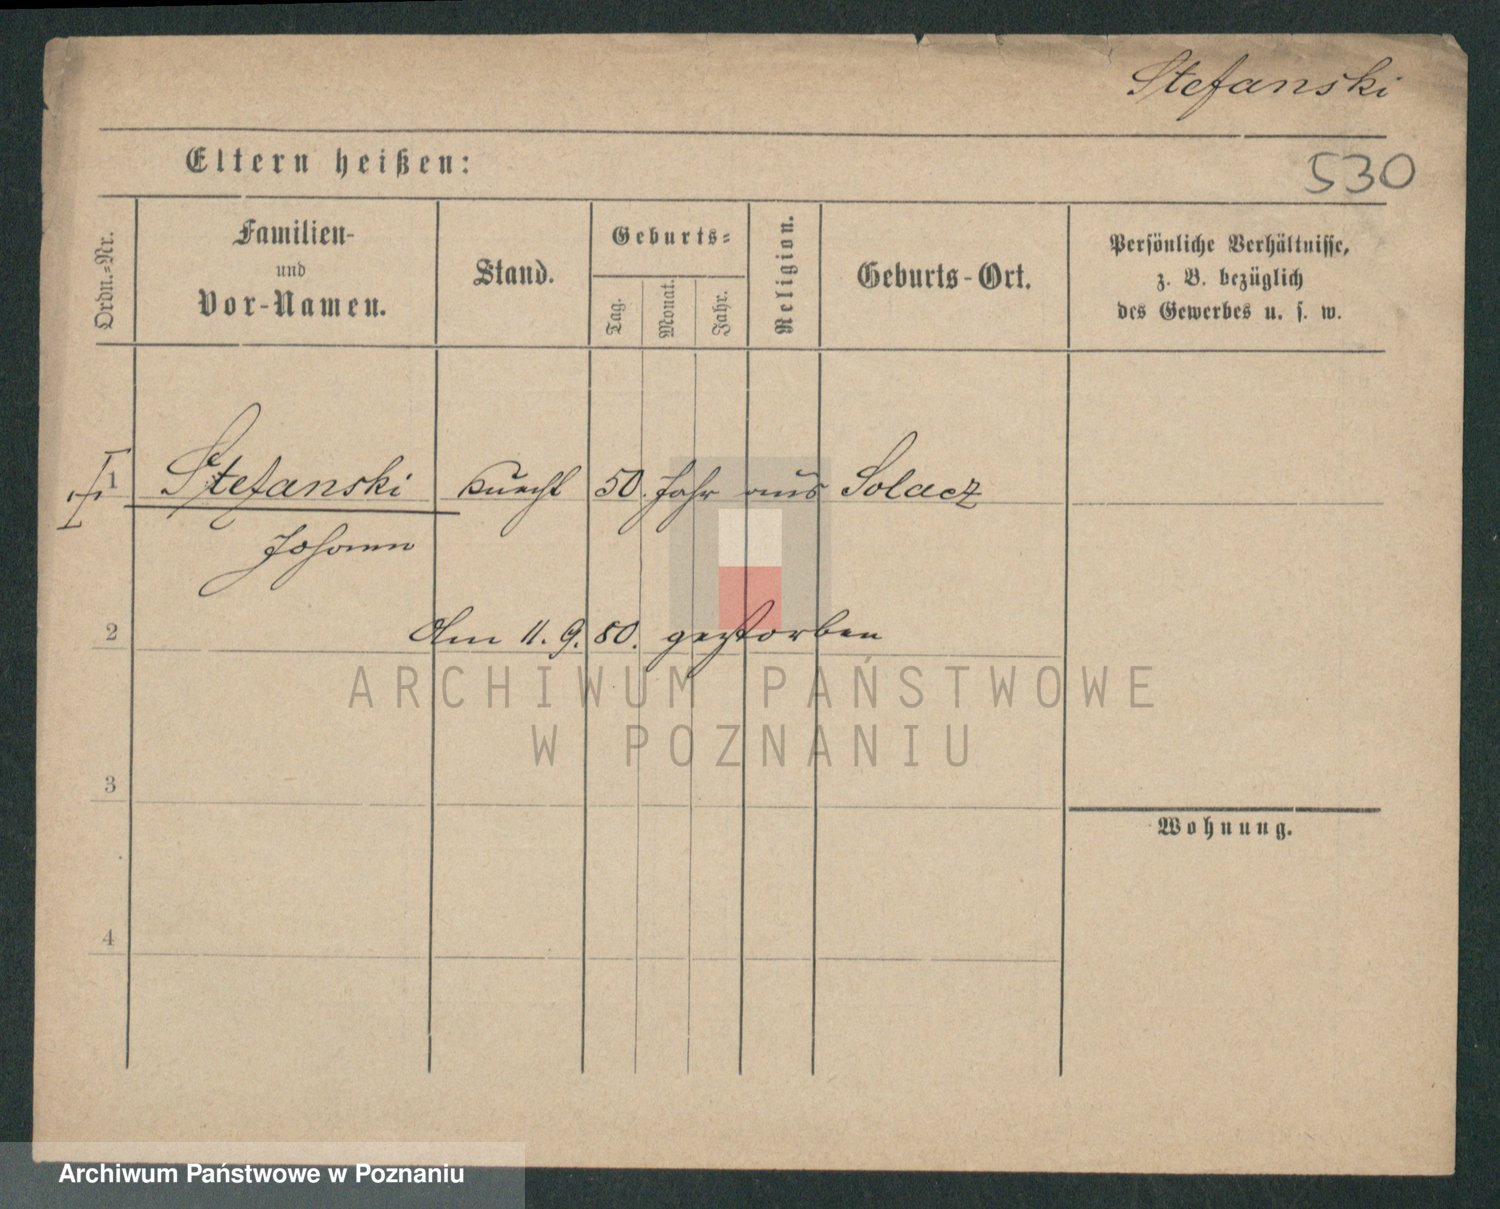 Stefanski
530
Eltern heißen:
Ordn.=Nr.
Familien-
und
Vor-Namen.
Stand.
Geburts=
Tag.
Monat.
Jahr.
Religion.
Geburts-Ort.
Persönliche Verhältnisse,
z. B. bezüglich
des Gewerbes u. s. w.
1 Stefanski Knecht 50. Jahr aus Solacz
Johann
2 Am 11. 9. 80. gestorben
ARCHIWUM PAŃSTWOWE
W POZNANIU
3
Wohnung.
4
Archiwum Państwowe w Poznaniu